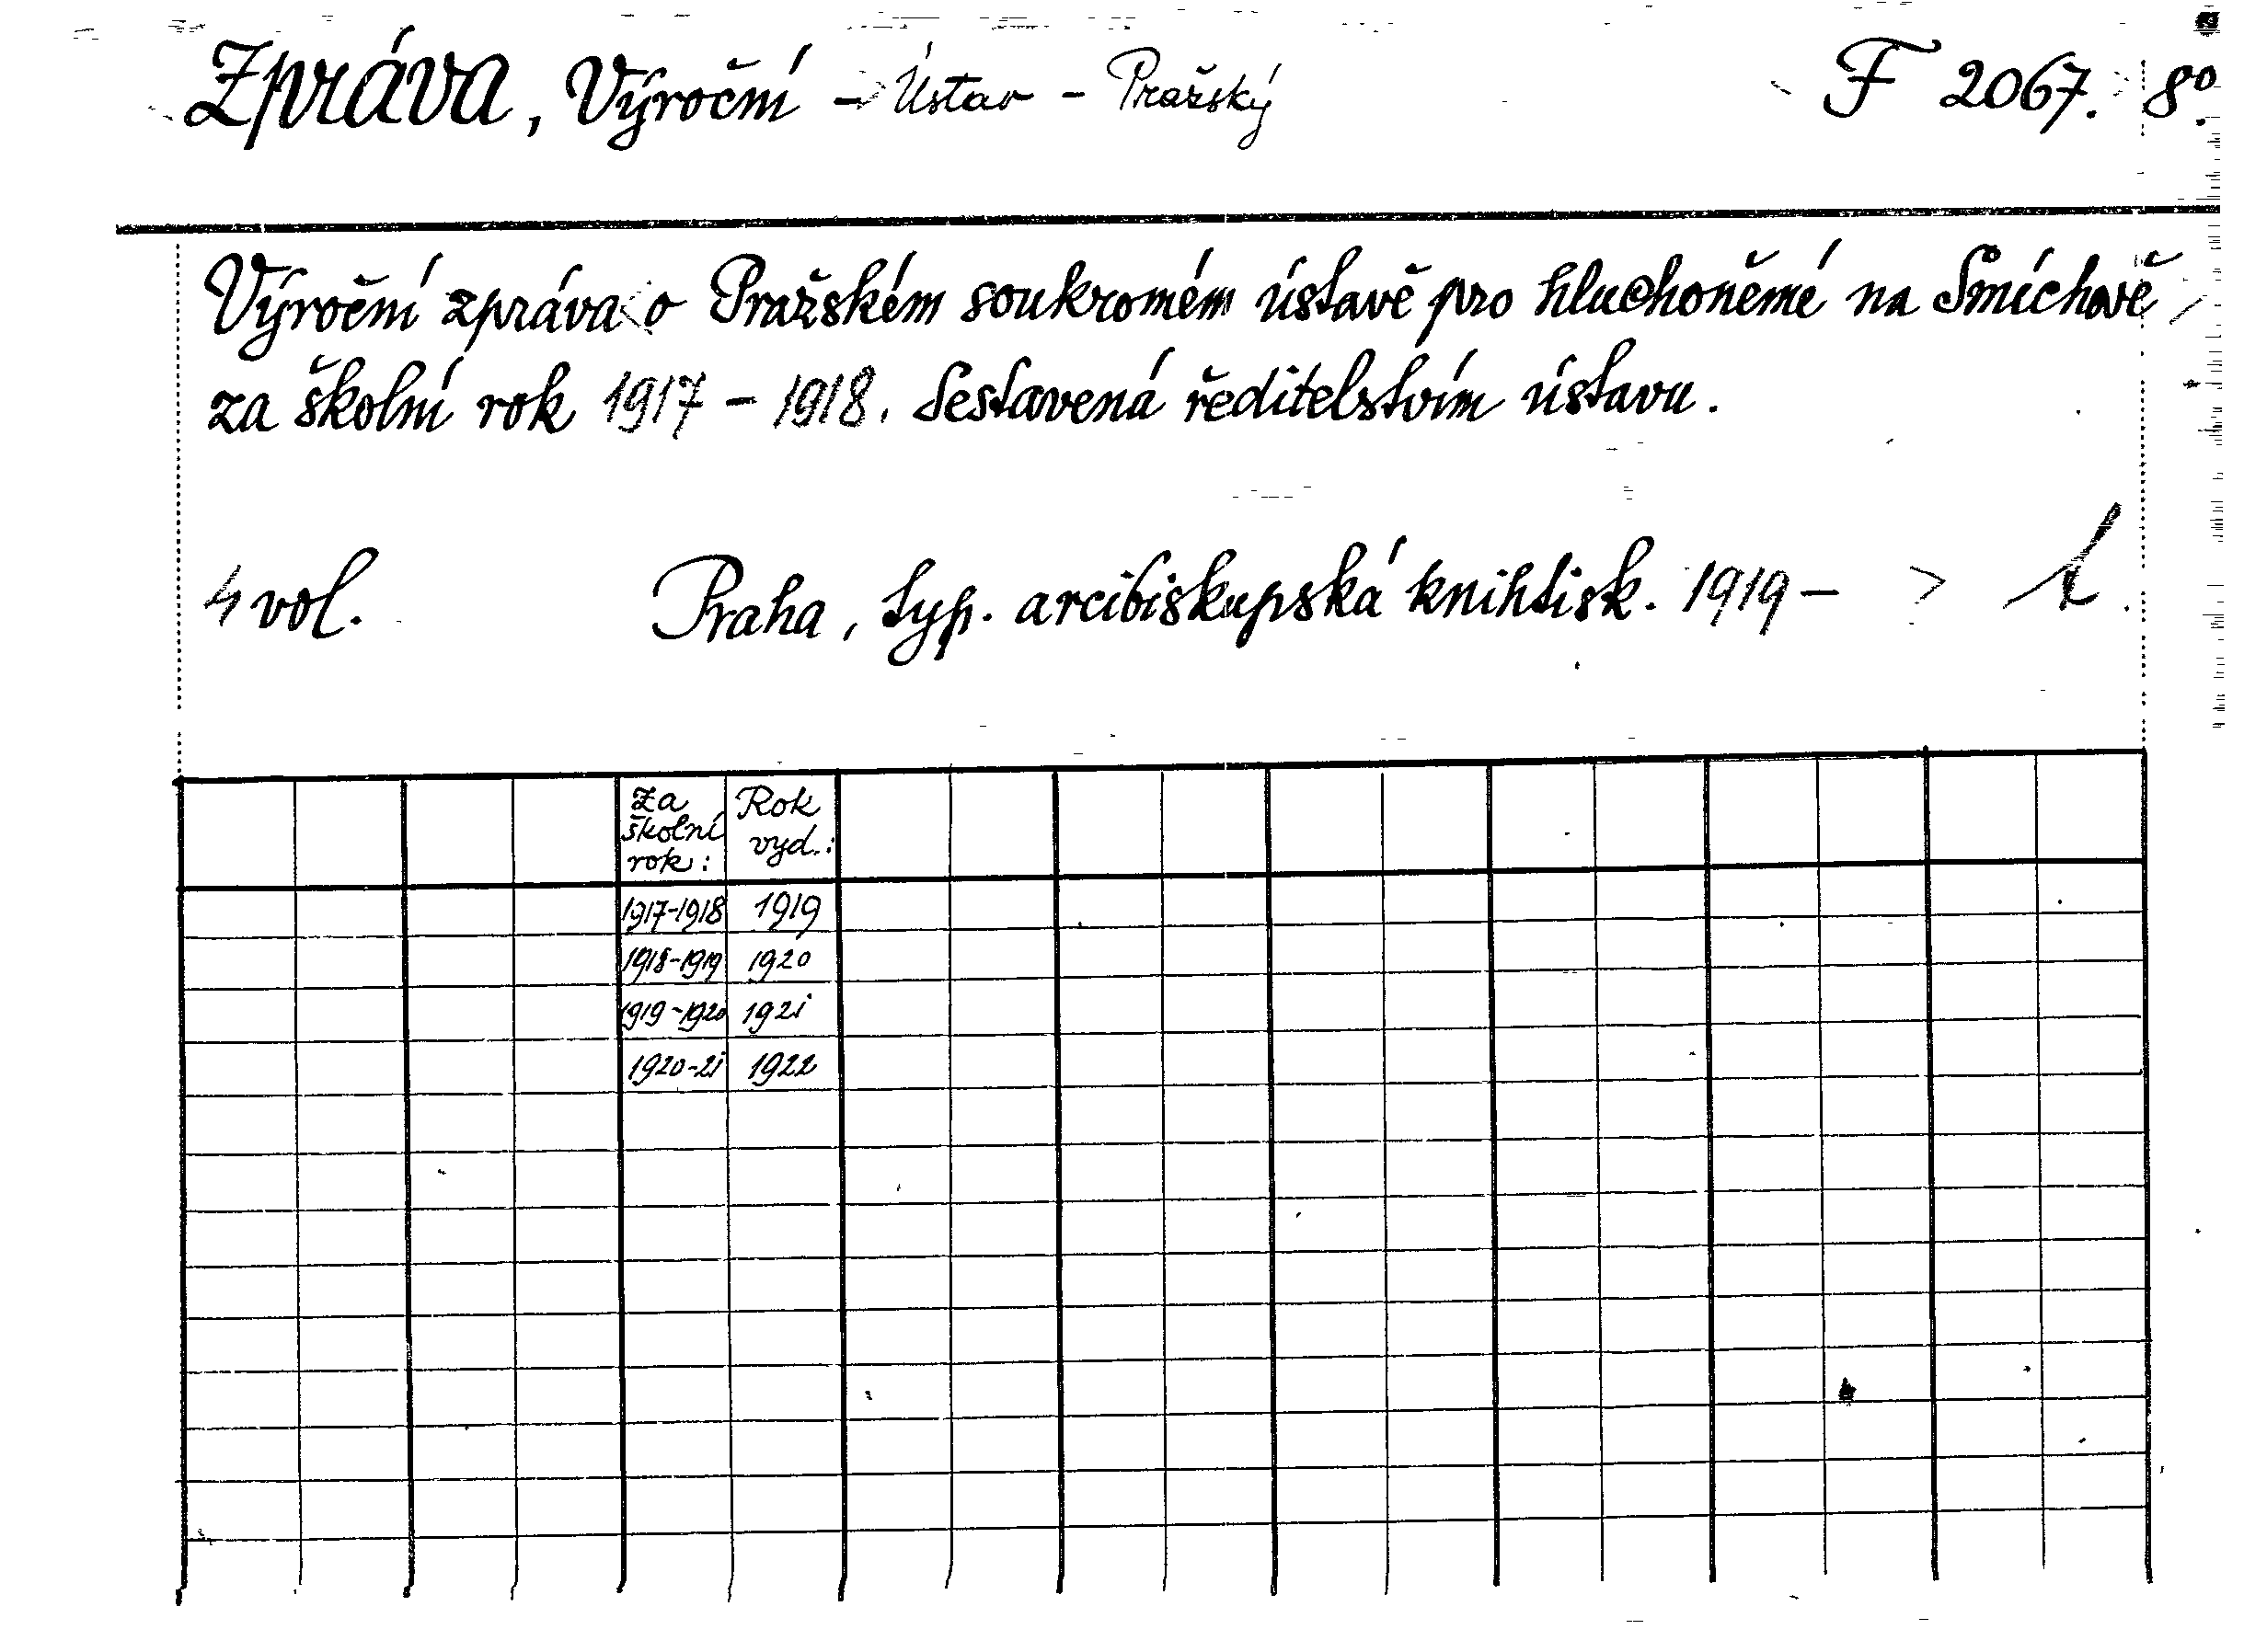 Zpráva, Výroční - Ústav - Pražský F 2067. 8º.
Výroční zpráva o Pražském soukromém ústavě pro hluchoněmé na Smíchově
za školní rok 1917 - 1918. Sestavená ředitelstvím ústavu.
4 vol. Praha, typ. arcibiskupská knihtisk. 1919 -
Za školní rok: Rok vyd.:
1917-1918 1919
1918-1919 1920
1919-1920 1921
1920-21 1922